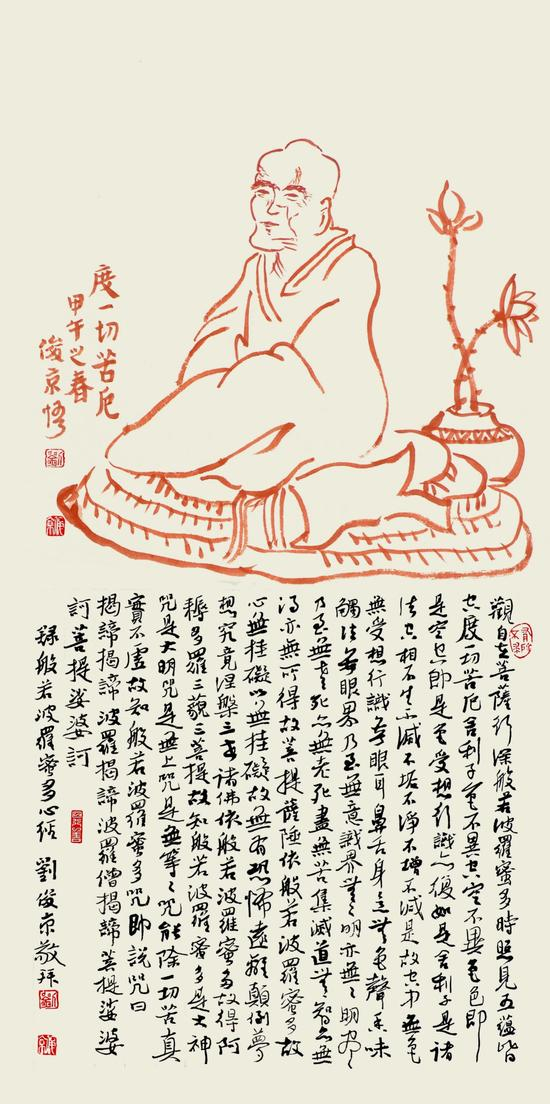 度一切苦厄
甲午之春
俊京悟
觀自在菩薩行深般若波羅蜜多時照見五蘊皆
空度一切苦厄舍利子色不異空空不異色色即
是空空即是色受想行識亦復如是舍利子是諸
法空相不生不滅不垢不淨不增不減是故空中無色
無受想行識無眼耳鼻舌身意無色聲香味
觸法無眼界乃至無意識界無々明亦無々明盡
乃至無老死亦無老死盡無苦集滅道無智亦無
得亦無可得故菩提薩埵依般若波羅蜜多故
心無挂礙以無挂礙故無有恐怖遠離顛倒夢
想究竟涅槃三世諸佛依般若波羅蜜多故得阿
耨多羅三藐三菩提故知般若波羅蜜多是大神
咒是大明咒是無上咒是無等々咒能除一切苦真
實不虛故知般若波羅蜜多咒即說咒曰
揭諦揭諦波羅揭諦波羅僧揭諦菩提娑婆
訶菩提娑婆訶
録般若波羅蜜多心經 劉俊京敬拜